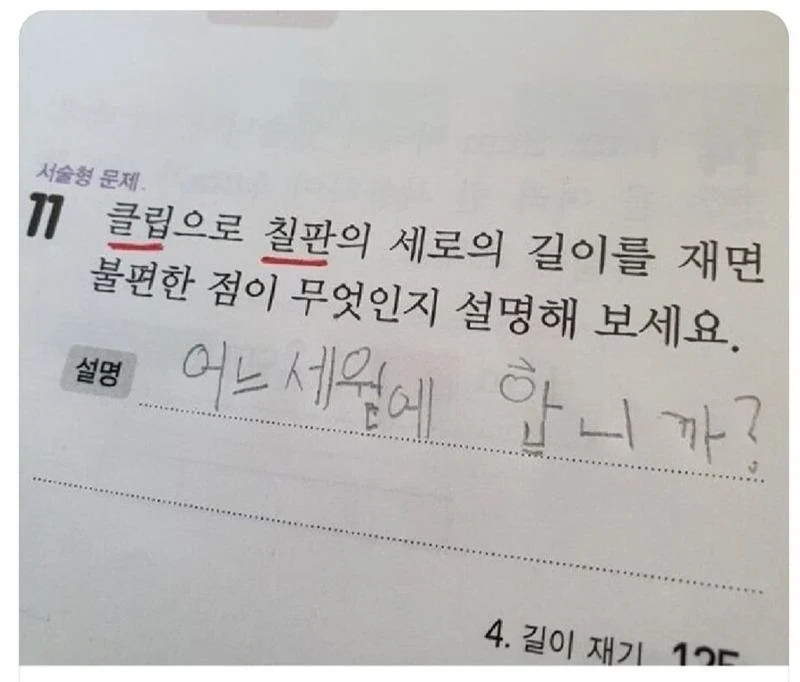 서술형 문제.
11 클립으로 칠판의 세로의 길이를 재면
불편한 점이 무엇인지 설명해 보세요.
설명 어느세월에 합니까?
4. 길이 재기 125